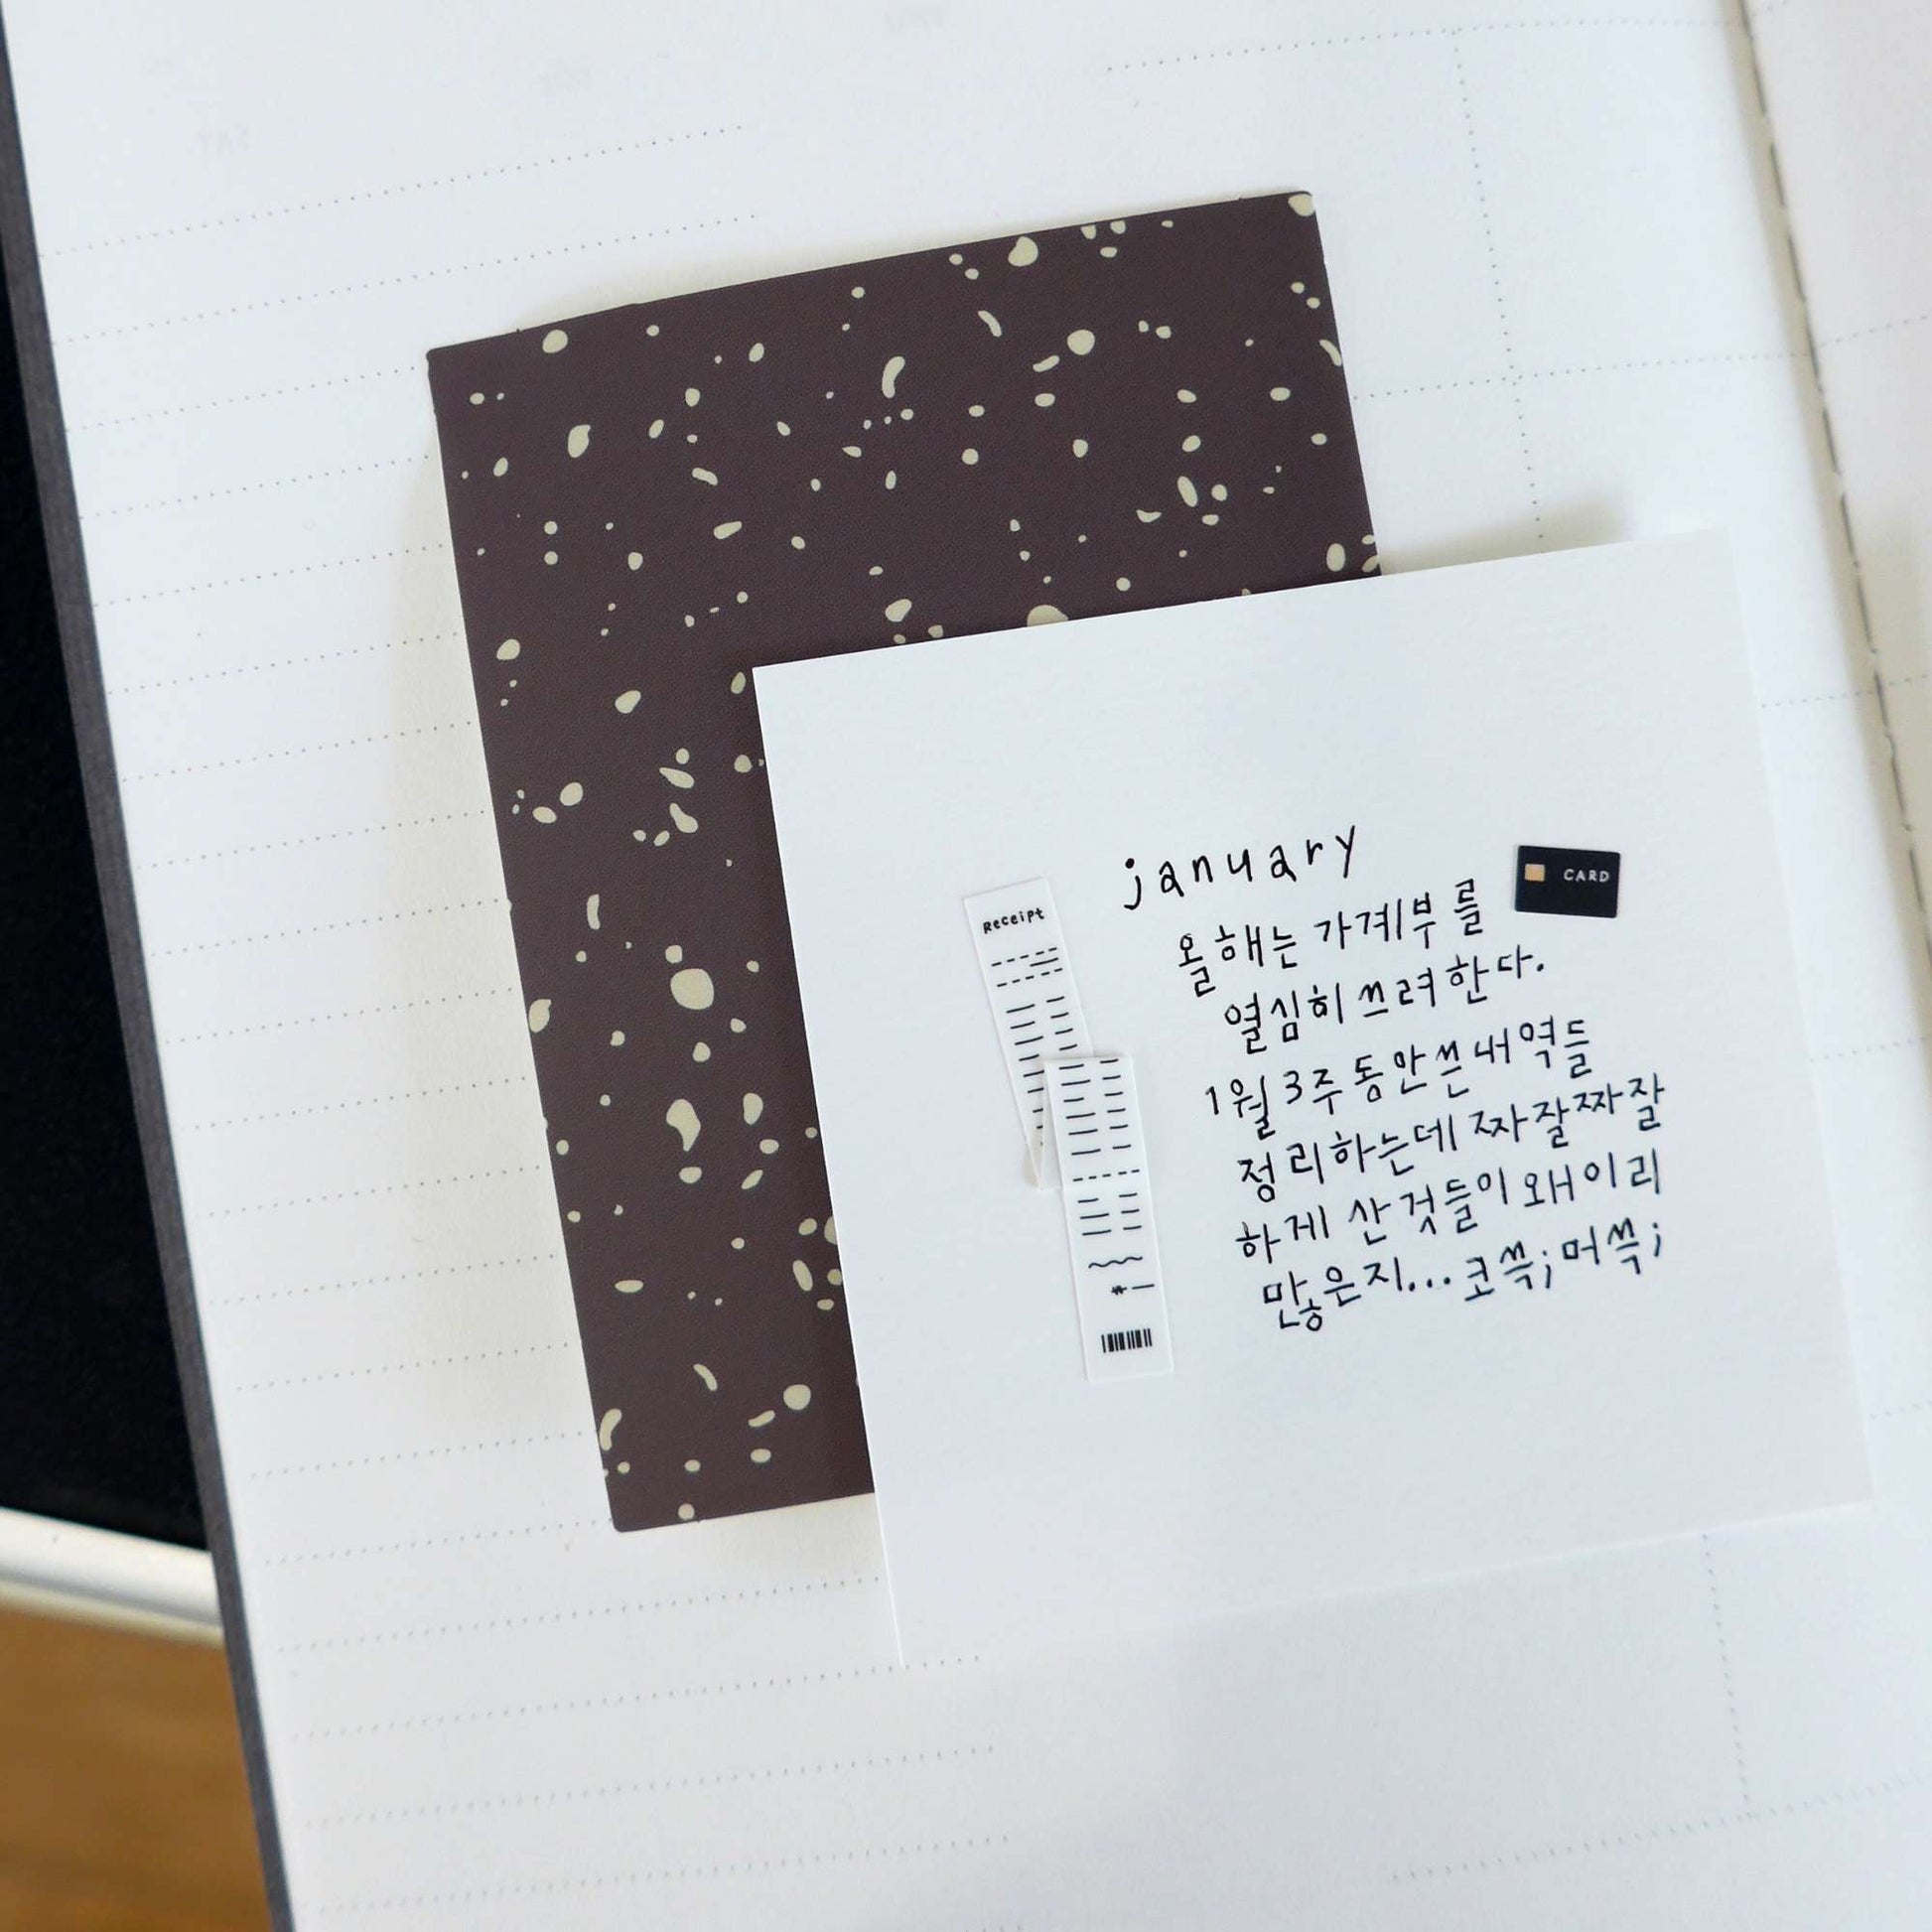 january
CARD
Receipt
올해는 가계부를
열심히 쓰려한다.
1월 3주동안 쓴 내역들
정리하는데 짜잘짜잘
하게 산 것들이 왜이리
많은지... 코쓱; 머쓱;
SAT